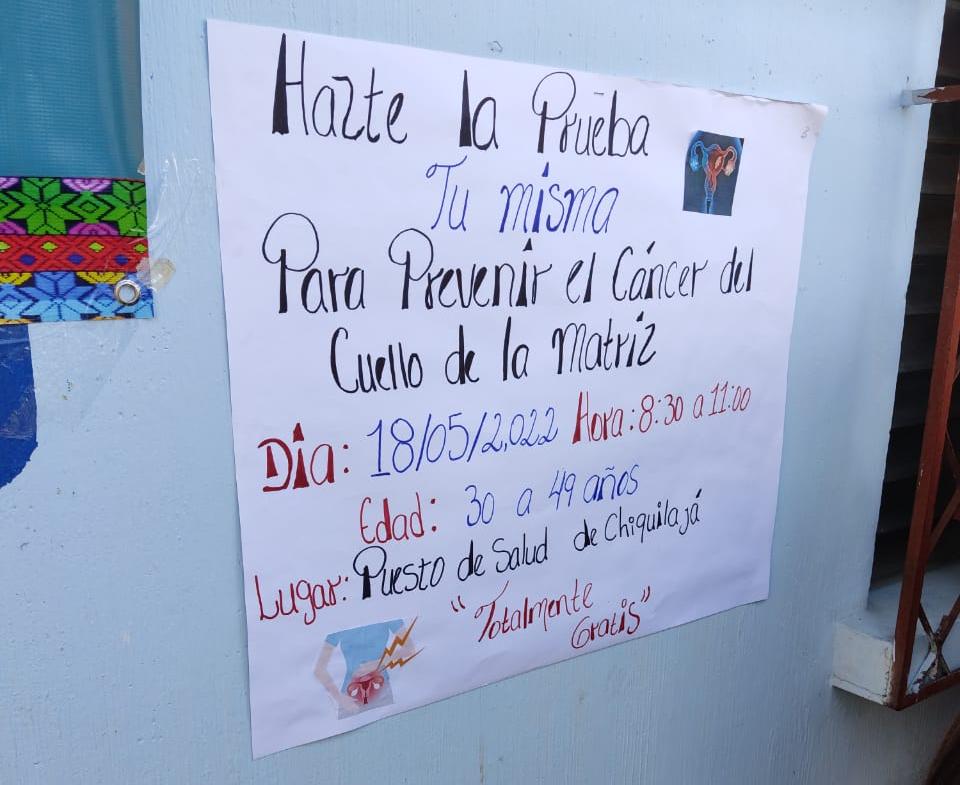 Hazte la Prueba
Tu misma
Para Prevenir el Cáncer del
Cuello de la Matriz
Día: 18/05/2,022 Hora: 8:30 a 11:00
Edad: 30 a 49 años
Lugar: Puesto de Salud de Chiquilajá
"Totalmente
Gratis"